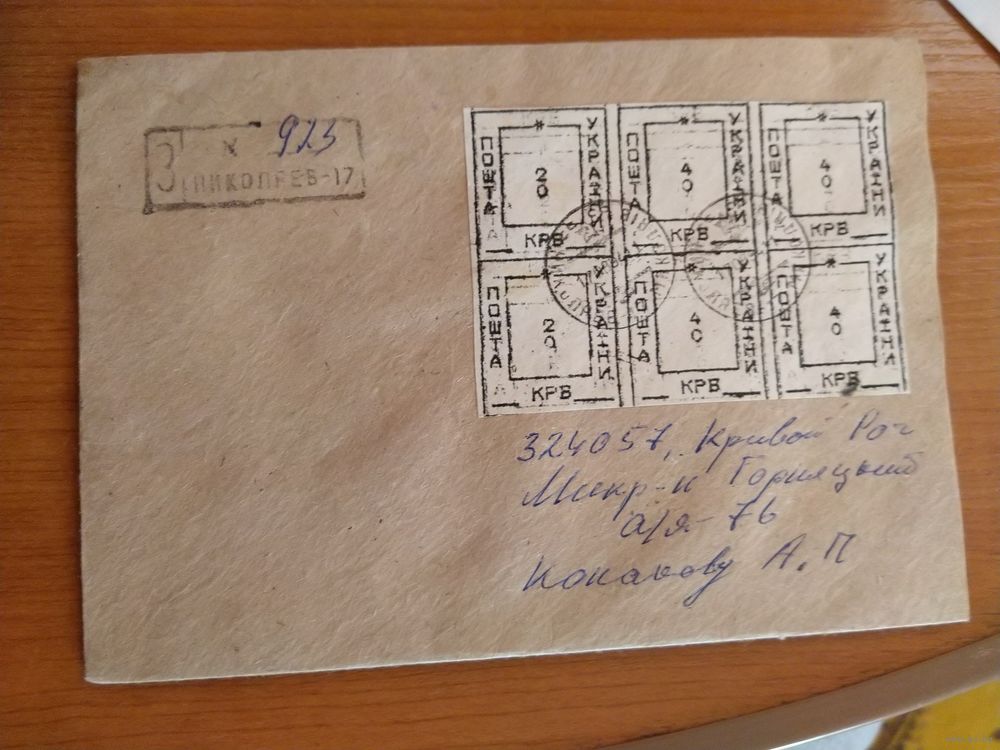 З № 923
НИКОЛАЕВ-17
ПОШТА 20 УКРАЇНИ КРБ
ПОШТА 40 УКРАЇНИ КРБ
ПОШТА 40 УКРАЇНИ КРБ
ПОШТА 20 УКРАЇНИ КРБ
ПОШТА 40 УКРАЇНИ КРБ
ПОШТА 40 УКРАЇНИ КРБ
324057, Кривой Рог
Микр-н Горняцкий
а/я- 76
А.П